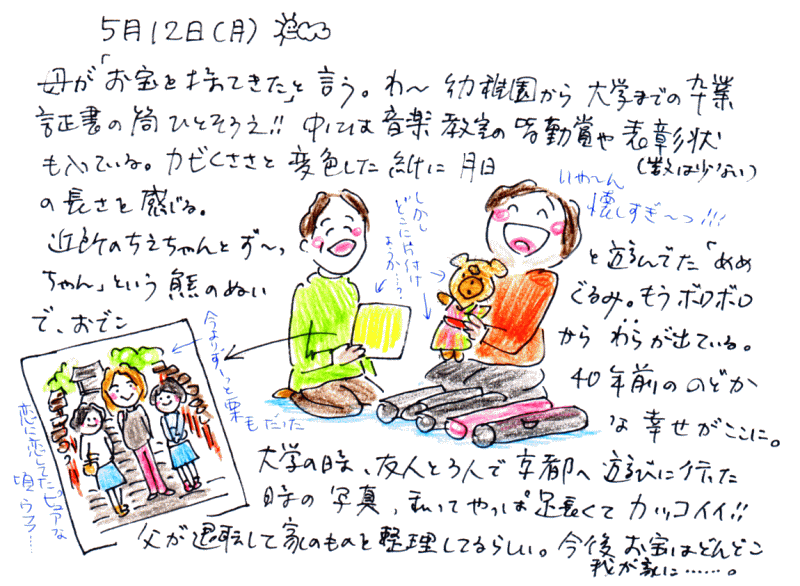 5月12日(月)
母が「お宝を持ってきた」と言う。わ〜 幼稚園から大学までの卒業
証書の筒ひとそろえ!! 中には音楽教室の皆勤賞や表彰状
(数は少ない)
も入っている。カビくささと変色した紙に月日
の長さを感じる。
いや〜ん
懐しすぎ〜っ!!!
しかし
どこに片付け
ようか…?
近所のちえちゃんとず〜っ
と遊んでた「めめ
ちゃん」という熊のぬい
ぐるみ。もうボロボロ
で、おでこ
からわらが出ている。
40年前ののどか
な幸せがここに。
今よりずーっと栗
もだった
恋に恋してたピュアな
頃 ウフフ…
大学の時、友人と3人で京都へ遊びに行った
時の写真、私ってやっぱ足長くてカッコイイ!!
父が退転して家のものを整理してるらしい。今後お宝はどんどこ
我が家に……。